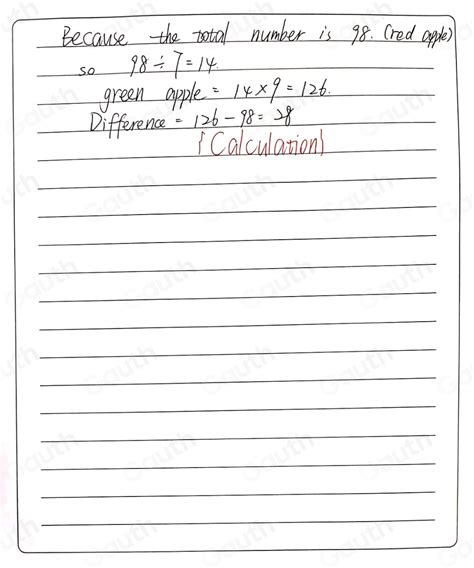 Because the total number is 98. (red apple)
so 98 ÷ 7 = 14.
green apple = 14 × 9 = 126.
Difference = 126 - 98 = 28
(Calculation)